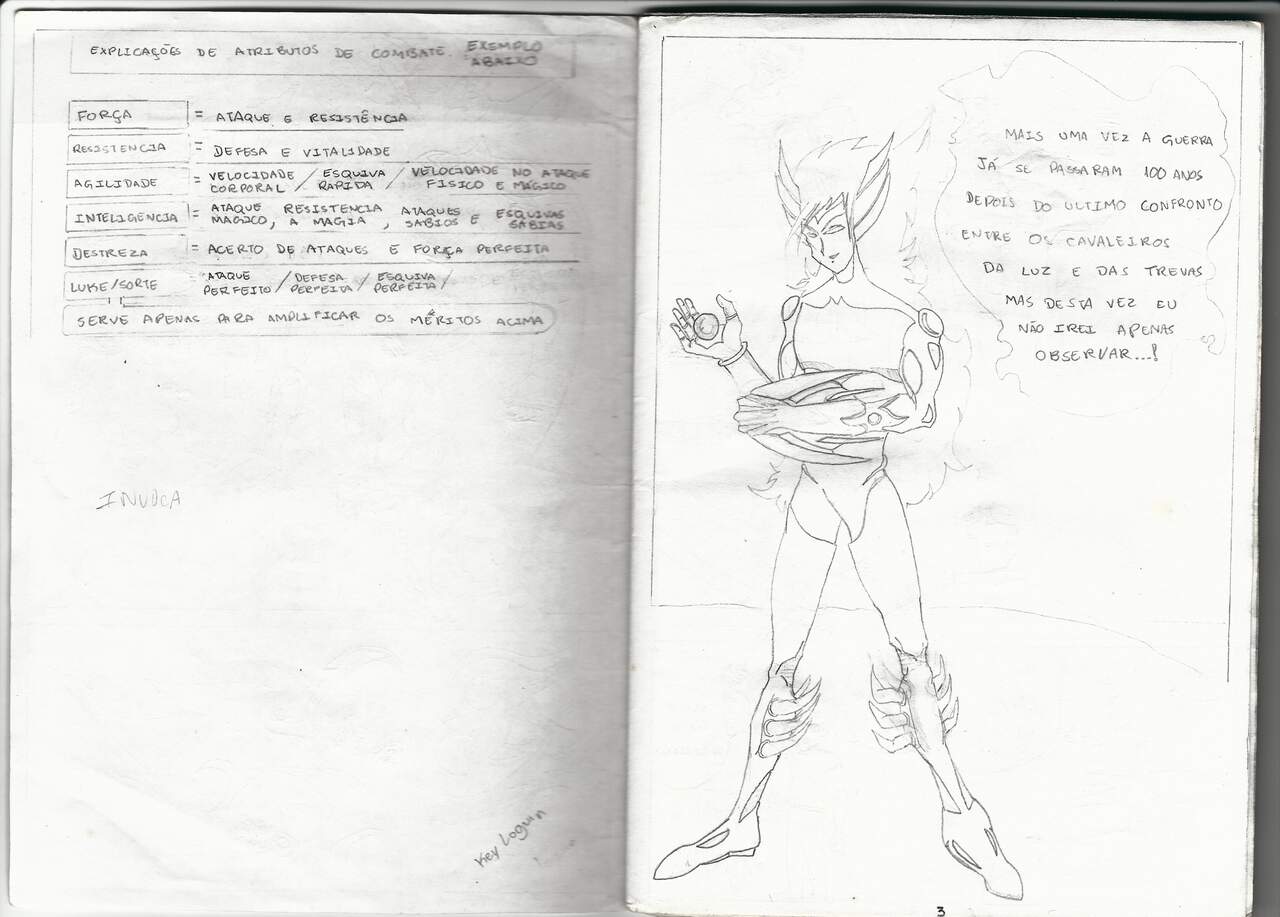 EXPLICAÇÕES DE ATRIBUTOS DE COMBATE. EXEMPLO
ABAIXO
FORÇA = ATAQUE E RESISTÊNCIA
RESISTENCIA = DEFESA E VITALIDADE
AGILIDADE = VELOCIDADE CORPORAL / ESQUIVA RAPIDA / VELOCIDADE NO ATAQUE FISICO E MÁGICO
INTELIGENCIA = ATAQUE MAGICO, RESISTENCIA A MAGIA, ATAQUES SABIOS E ESQUIVAS SABIAS
DESTREZA = ACERTO DE ATAQUES E FORÇA PERFEITA
LUKE/SORTE = ATAQUE PERFEITO / DEFESA PERFEITA / ESQUIVA PERFEITA /
SERVE APENAS PARA AMPLIFICAR OS MÉRITOS ACIMA
INVOCA
Key Loguin
MAIS UMA VEZ A GUERRA
JÁ SE PASSARAM 100 ANOS
DEPOIS DO ULTIMO CONFRONTO
ENTRE OS CAVALEIROS
DA LUZ E DAS TREVAS
MAS DESTA VEZ EU
NÃO IREI APENAS
OBSERVAR...!
3